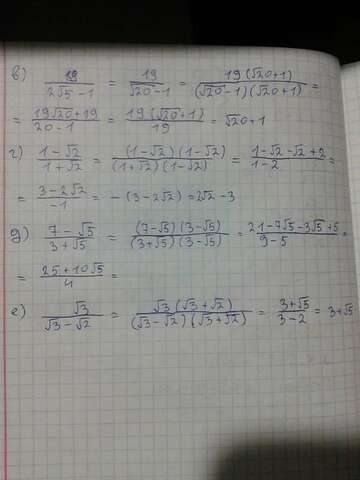 в) 19/(2√5-1) = 19/(√20-1) = 19(√20+1)/((√20-1)(√20+1)) =
= (19√20+19)/(20-1) = 19(√20+1)/19 = √20+1
г) (1-√2)/(1+√2) = (1-√2)(1-√2)/((1+√2)(1-√2)) = (1-√2-√2+2)/(1-2) =
= (3-2√2)/(-1) = -(3-2√2) = 2√2-3
д) (7-√5)/(3+√5) = (7-√5)(3-√5)/((3+√5)(3-√5)) = (21-7√5-3√5+5)/(9-5) =
= (25+10√5)/4 =
е) √3/(√3-√2) = √3(√3+√2)/((√3-√2)(√3+√2)) = (3+√5)/(3-2) = 3+√5